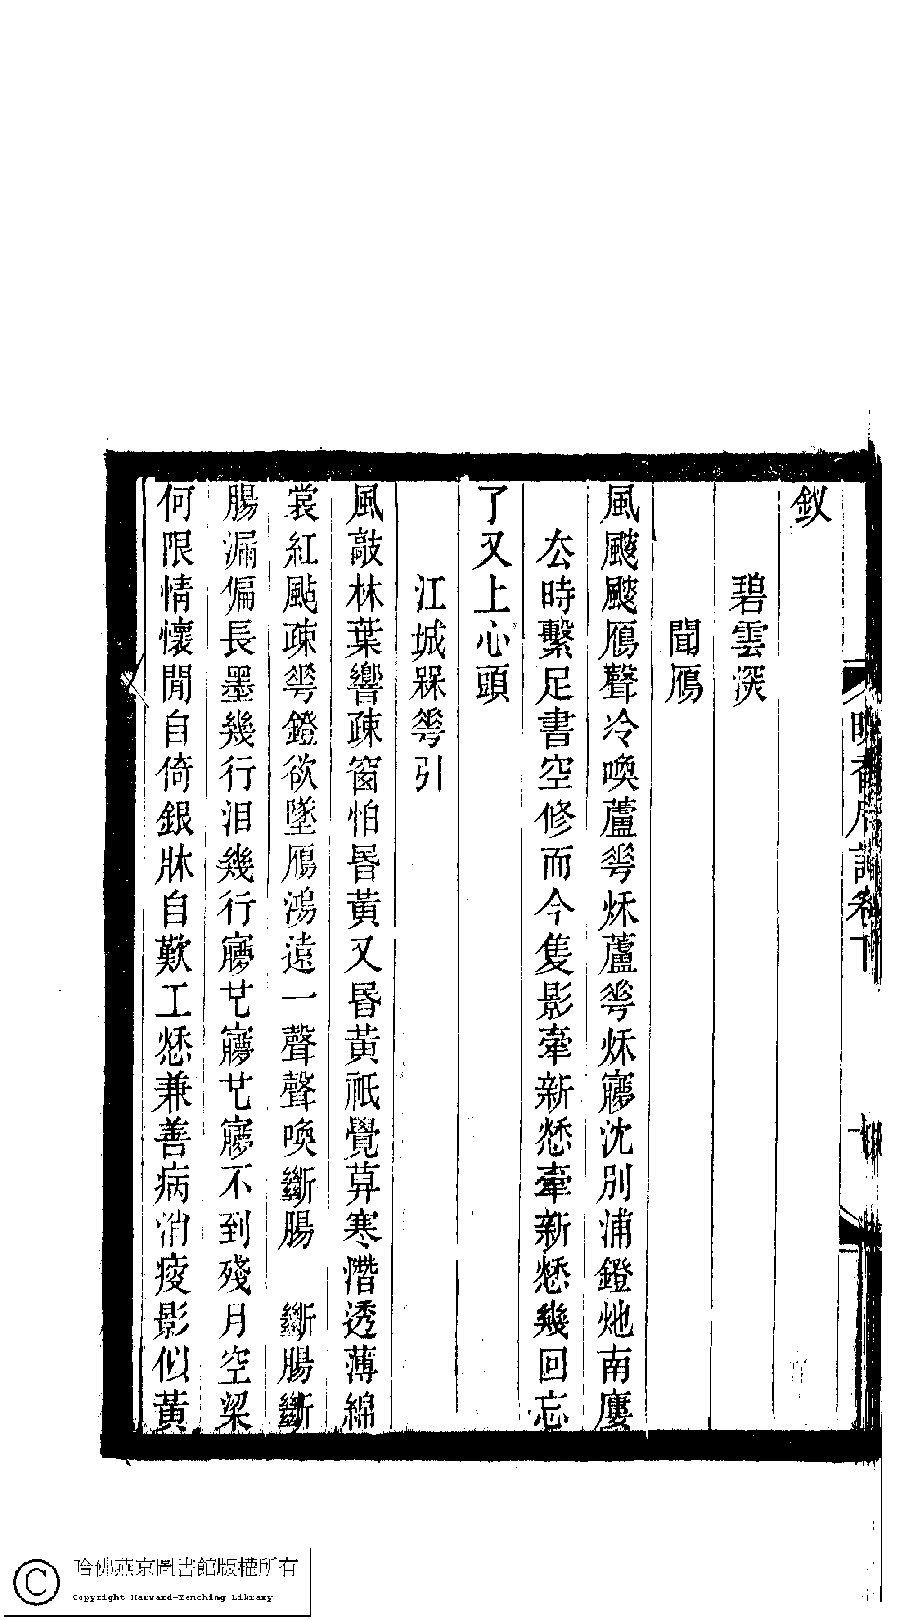 釵
碧雲深
聞鴈
風颼颼鴈聲冷喚蘆蕐秌蘆蕐秌㝱沈別浦鐙灺南廔
厺時繫足書空修而今隻影牽新愁牽新愁幾回忘
了又上心頭
江城槑蕐引
風敲林葉響疎窗怕昬黃又昬黃祇覺葬寒潛透薄綿
裳紅颭疎蕐鐙欲墜鴈鴻遠一聲聲喚斷腸　斷腸斷
腸漏偏長墨幾行泪幾行㝱𠀍㝱𠀍㝱不到殘月空梁
何限情懷閒自倚銀牀自歎工愁兼善病消瘦影似黃
晚香居詞卷下
哈佛燕京圖書館版權所有
Copyright Harvard-Yenching Library